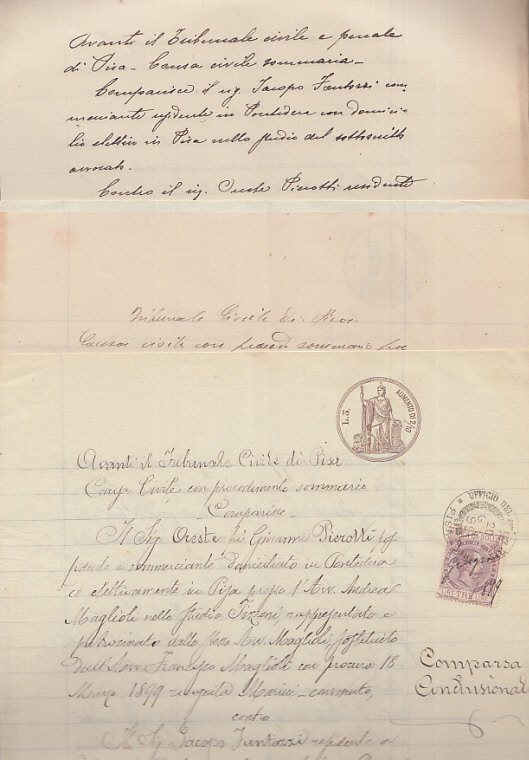 Avanti il Tribunale civile e penale
di Pisa - Causa civile sommaria -
Comparisce il sig. Jacopo Fantozzi com
merciante residente in Pontedera con domici
lio elettivo in Pisa nello studio del sottoscritto
avvocato.
Contro il sig. Oreste Pierotti residente
Tribunale Civile di Pisa
Causa civile con
L.3.
AUMENTO DI 2/10
Avanti il Tribunale Civile di Pisa
Causa Civile con procedimento sommario
Comparisce
Il Sig. Oreste di Giovanni Pierotti pos
sidente e commerciante domiciliato in Pontedera
ed elettivamente in Pisa presso l'Avv. Andrea
Maglioli nello studio Tizzoni, rappresentato e
patrocinato dallo stesso Avv. Maglioli sostituito
dall'Avv. Francesco Maglioli con procura 18
Marzo 1899 recognita - convenuto,
contro
Il Sig. Jacopo Fantozzi residente a
UFFICIO DEL
PISA
LIRE TRE
Comparsa
Conclusional